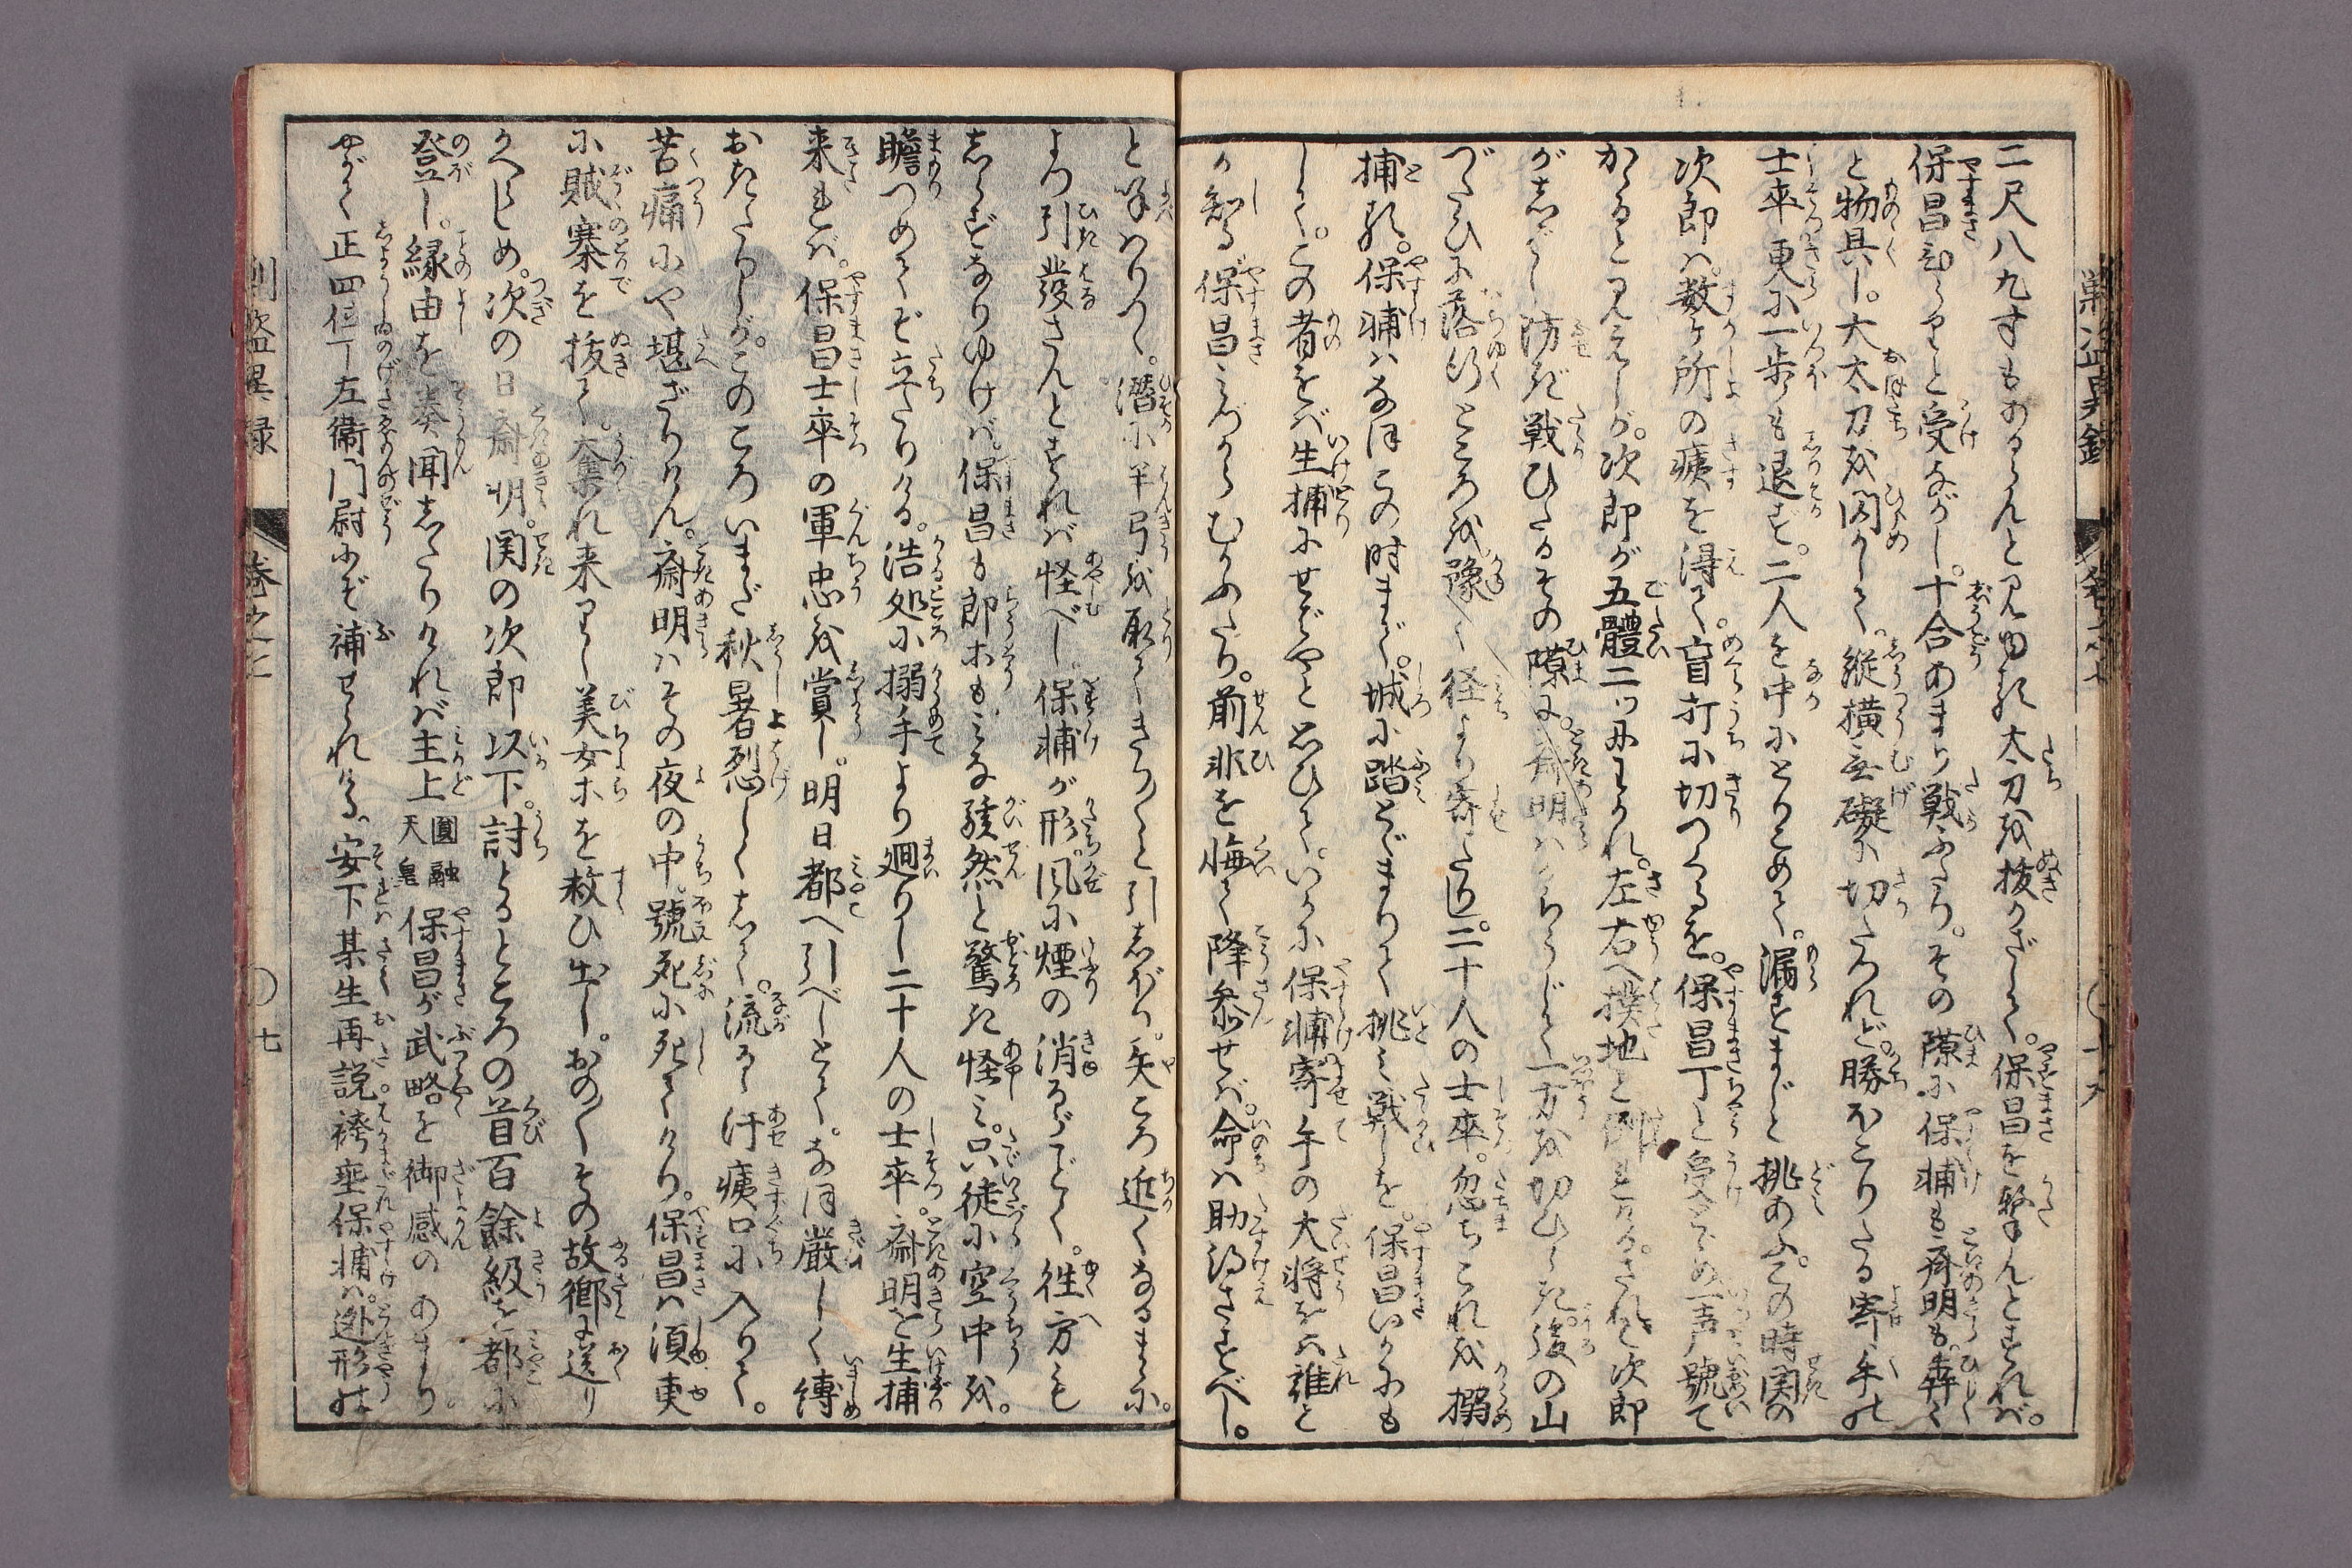 二尺八九寸もあらんと見ゆる太刀を抜かざして。保昌を撃んとすれば。
保昌ひらりと受ながし。十合あまり戦ふたり。その隙に保輔も斎明も。犇々
と物具し。大太刀を閃かして。縦横無碍に切たれど。勝ほこりたる寄手の
士卒。更に一歩も退ず。二人を中にとりこめて。漏すまじと挑あふ。この時関の
次郎は。数ヶ所の痍を得て。盲打に切つくるを。保昌丁と受とめ一声號て
かゝると見えしが。次郎が五體二ッにわかれ。左右へ撲地と倒れける。されど次郎
がしばし防ぎ戦ひたるその隙に。斎明はからうじて一方を切ひらき。後の山
づたひに落行ところを。豫て径より寄たりし。二十人の士卒。忽ちこれを搦
捕る。保輔はなほこの時まで。城に踏とゞまりて挑み戦しを。保昌いかにも
して。この者をば生捕にせばやと思ひて。いかに保輔寄手の大将をば誰と
か知る保昌みづからむかふたり。前非を悔て降参せば。命は助得さすべし。
と呼はりつゝ。潜に半弓を取てきり〳〵と引しぼり。矢ころ近くなるまゝに。
よつ引發さんとすれば怪べし保輔が形。風に煙の消るごとく。往方も
しらずなりゆけば。保昌も郎等もみな駭然と驚き怪み。只徒に空中を。
瞻つめてぞ立たりける。浩処に搦手より廻りし二十人の士卒。斎明を生捕
来れば。保昌士卒の軍忠を賞し。明日都へ引べしとて。なほ厳しく縛
おきたりしが。このころいまだ秋暑烈しくして。流るゝ汗痍口に入りて。
苦痛にや堪ざりけん。斎明はその夜の中。號死に死てけり。保昌は須臾
に賊寨を抜て。奪れ来りし美女等を救ひ出し。おの〳〵その故郷に送り
かへらしめ。次の日斎明。関の次郎以下。討とるところの首百餘級を都に
登し。縁由を奏聞したりければ主上圓融天皇保昌が武略を御感のあまり。
やがて正四位下左衛門尉にぞ補せられける。安下某生再説袴垂保輔は。遯形の